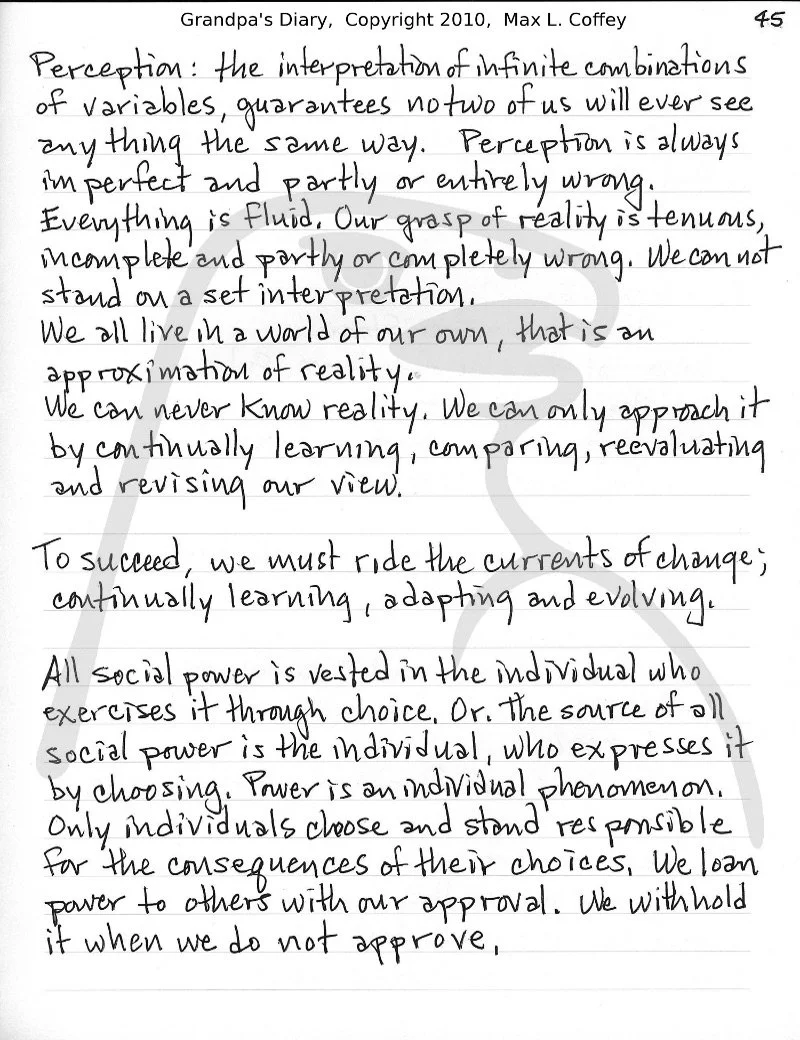 Grandpa's Diary, Copyright 2010, Max L. Coffey
45
Perception: the interpretation of infinite combinations
of variables, guarantees no two of us will ever see
any thing the same way. Perception is always
imperfect and partly or entirely wrong.
Everything is fluid. Our grasp of reality is tenuous,
incomplete and partly or completely wrong. We can not
stand on a set interpretation.
We all live in a world of our own, that is an
approximation of reality.
We can never know reality. We can only approach it
by continually learning, comparing, reevaluating
and revising our view.
To succeed, we must ride the currents of change;
continually learning, adapting and evolving.
All social power is vested in the individual who
exercises it through choice. Or. The source of all
social power is the individual, who expresses it
by choosing. Power is an individual phenomenon.
Only individuals choose and stand responsible
for the consequences of their choices. We loan
power to others with our approval. We withhold
it when we do not approve.